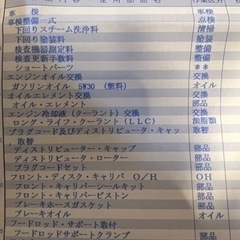 車 検 車検
車検整備一式 点検
下回りスチーム洗浄料 清掃
下回り塗装料 塗装
検査機器測定料 整備
検査更新手数料 検査
ショートパーツ **
エンジンオイル交換 交換
ガソリンオイル 5W30 (無料) オイル
オイルエレメント交換 交換
オイル・エレメント 部品
エンジン冷却液(クーラント)交換 交換
ロング・ライフ・クーラント(LLC) 油脂類
プラグコード及びディストリビュータ・キャッ 取替
プ 取替
ディストリビューター・キャップ 部品
ディストリビュータ・ローター 部品
プラグコードセット 部品
フロント・ディスク・キャリパ O/H OH
フロント・キャリパーシールキット 部品
フロント・キャリパーピストン 部品
ブレーキホースガスケット 部品
ブレーキオイル オイル
フードロッド・サポート取付
フードロッドサポートクランプ 部品